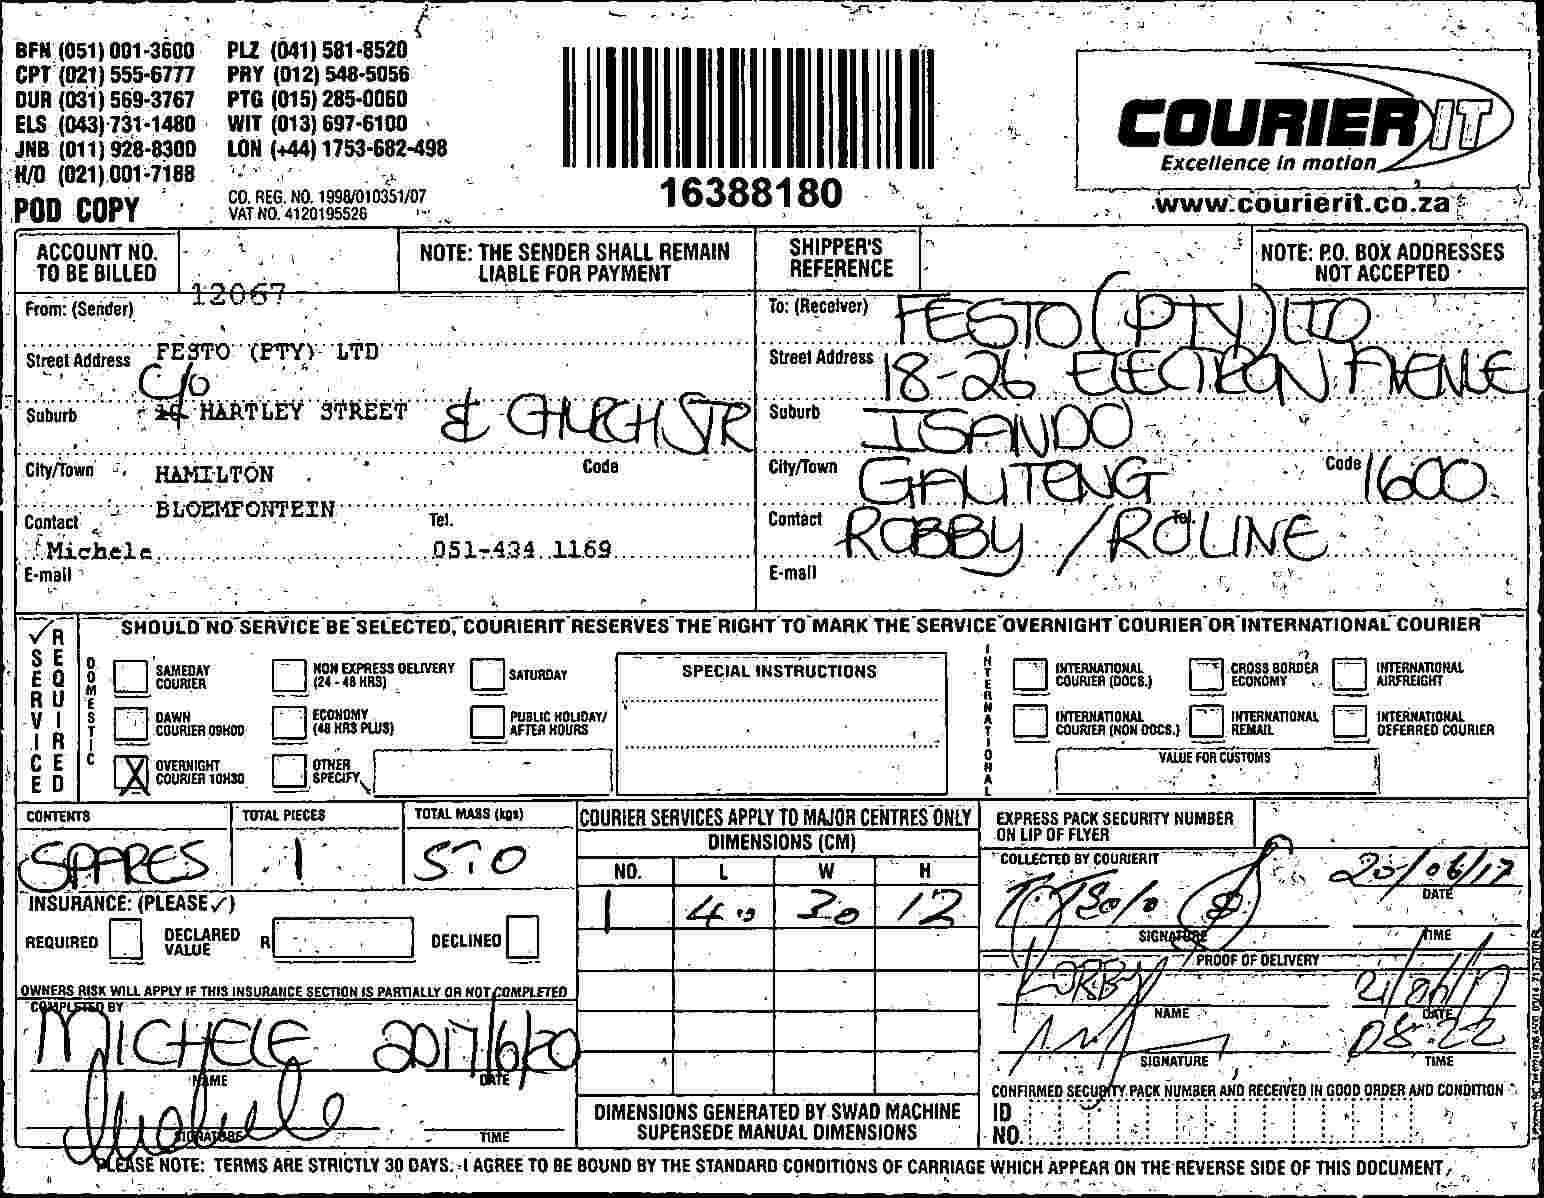 BFN (051) 001-3600 PLZ (041) 581-8520
CPT (021) 555-6777 PRY (012) 548-5056
DUR (031) 569-3767 PTG (015) 285-0060
ELS (043) 731-1480 WIT (013) 697-6100
JNB (011) 928-8300 LON (+44) 1753-682-498
H/O (021) 001-7188
CO. REG. NO. 1998/010351/07
POD COPY VAT NO. 4120195526
16388180
COURIER IT
Excellence in motion
www.courierit.co.za
ACCOUNT NO. TO BE BILLED
12067
NOTE: THE SENDER SHALL REMAIN LIABLE FOR PAYMENT
SHIPPER'S REFERENCE
NOTE: P.O. BOX ADDRESSES NOT ACCEPTED
From: (Sender)
Street Address FESTO (PTY) LTD
c/o
Suburb HARTLEY STREET & CHURCH STR
City/Town HAMILTON Code
BLOEMFONTEIN
Contact Michele Tel. 051-434 1169
E-mail
To: (Receiver) FESTO (PTY) LTD
Street Address 18-26 ELECTRON AVENUE
Suburb ISANDO
City/Town GAUTENG Code 1600
Contact ROBBY / ROLINE Tel.
E-mail
SERVICE REQUIRED
SHOULD NO SERVICE BE SELECTED, COURIERIT RESERVES THE RIGHT TO MARK THE SERVICE OVERNIGHT COURIER OR INTERNATIONAL COURIER
DOMESTIC
SAMEDAY COURIER
NON EXPRESS DELIVERY (24 - 48 HRS)
SATURDAY
DAWN COURIER 09H00
ECONOMY (48 HRS PLUS)
PUBLIC HOLIDAY/ AFTER HOURS
X OVERNIGHT COURIER 10H30
OTHER SPECIFY
SPECIAL INSTRUCTIONS
INTERNATIONAL
INTERNATIONAL COURIER (DOCS.)
CROSS BORDER ECONOMY
INTERNATIONAL AIRFREIGHT
INTERNATIONAL COURIER (NON DOCS.)
INTERNATIONAL REMAIL
INTERNATIONAL DEFERRED COURIER
VALUE FOR CUSTOMS
CONTENTS TOTAL PIECES TOTAL MASS (kgs)
SPARES 1 5.0
INSURANCE: (PLEASE ✓)
REQUIRED DECLARED VALUE R DECLINED
OWNERS RISK WILL APPLY IF THIS INSURANCE SECTION IS PARTIALLY OR NOT COMPLETED
COMPLETED BY
MICHELE 2017/6/20
NAME DATE
SIGNATURE TIME
COURIER SERVICES APPLY TO MAJOR CENTRES ONLY
DIMENSIONS (CM)
NO. L W H
1 40 30 12
DIMENSIONS GENERATED BY SWAD MACHINE
SUPERSEDE MANUAL DIMENSIONS
EXPRESS PACK SECURITY NUMBER ON LIP OF FLYER
COLLECTED BY COURIERIT
20/06/17
DATE
SIGNATURE TIME
PROOF OF DELIVERY
ROBBY 21/06/17
NAME DATE
08:22
SIGNATURE TIME
CONFIRMED SECURITY PACK NUMBER AND RECEIVED IN GOOD ORDER AND CONDITION
ID NO.
PLEASE NOTE: TERMS ARE STRICTLY 30 DAYS. I AGREE TO BE BOUND BY THE STANDARD CONDITIONS OF CARRIAGE WHICH APPEAR ON THE REVERSE SIDE OF THIS DOCUMENT.